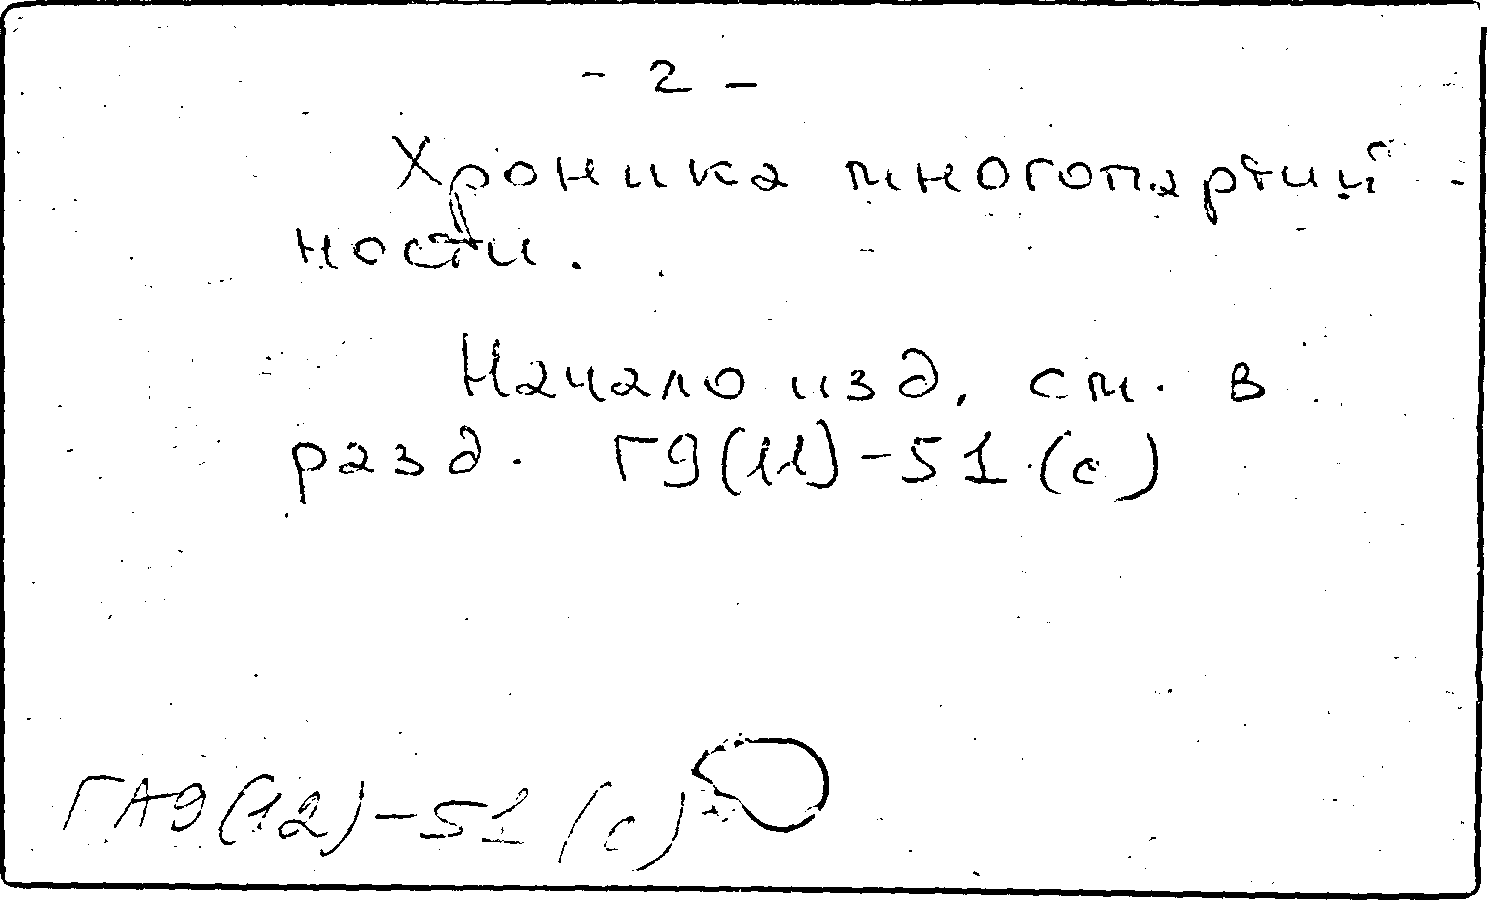 - 2 -
Хроника многопартий-
ности.
Начало изд. см. в
разд. Г9(11)-51(с)
ГА9(12)-51(с)